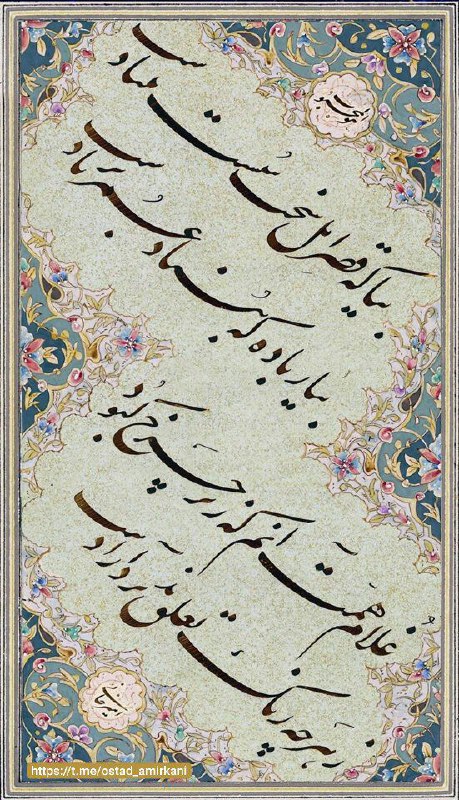 بیا که قصر امل سخت سست بنیادست
بیار باده که بنیاد عمر بر بادست
غلام همت آنم که زیر چرخ کبود
ز هر چه رنگ تعلق پذیرد آزادست
https://t.me/ostad_amirkani